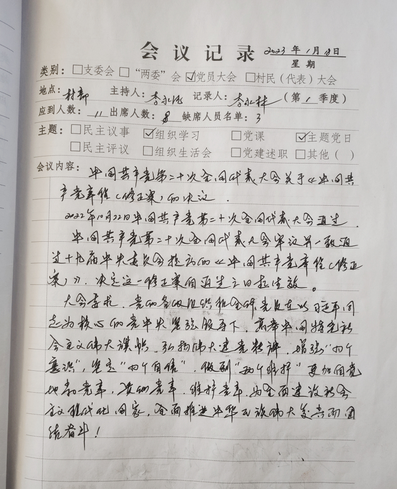 会议记录 2023年1月18日
星期
类别：□支委会 □“两委”会 ☑党员大会 □村民（代表）大会
地点：村部 主持人：李永 记录人：李永林（第1季度）
应到人数：11 出席人数：8 缺席人员名单：3
主题：□民主议事 ☑组织学习 □党课 ☑主题党日
□民主评议 □组织生活会 □党建述职 □其他（ ）
会议内容：中国共产党第二十次全国代表大会关于《中国共
产党章程（修正案）》的决议
2022年10月22日中国共产党第二十次全国代表大会通过
中国共产党第二十次全国代表大会审议并一致通
过十九届中央委员会提出的《中国共产党章程（修正
案）》，决定这一修正案自通过之日起生效。
大会要求，党的各级组织和全体党员在以习近平同
志为核心的党中央坚强领导下，高举中国特色社
会主义伟大旗帜，弘扬伟大建党精神，增强“四个
意识”，坚定“四个自信”，做到“两个维护”更加自觉
地学习党章，遵守党章，维护党章，为全面建设社会
主义现代化国家，全面推进中华民族伟大复兴而团
结奋斗！